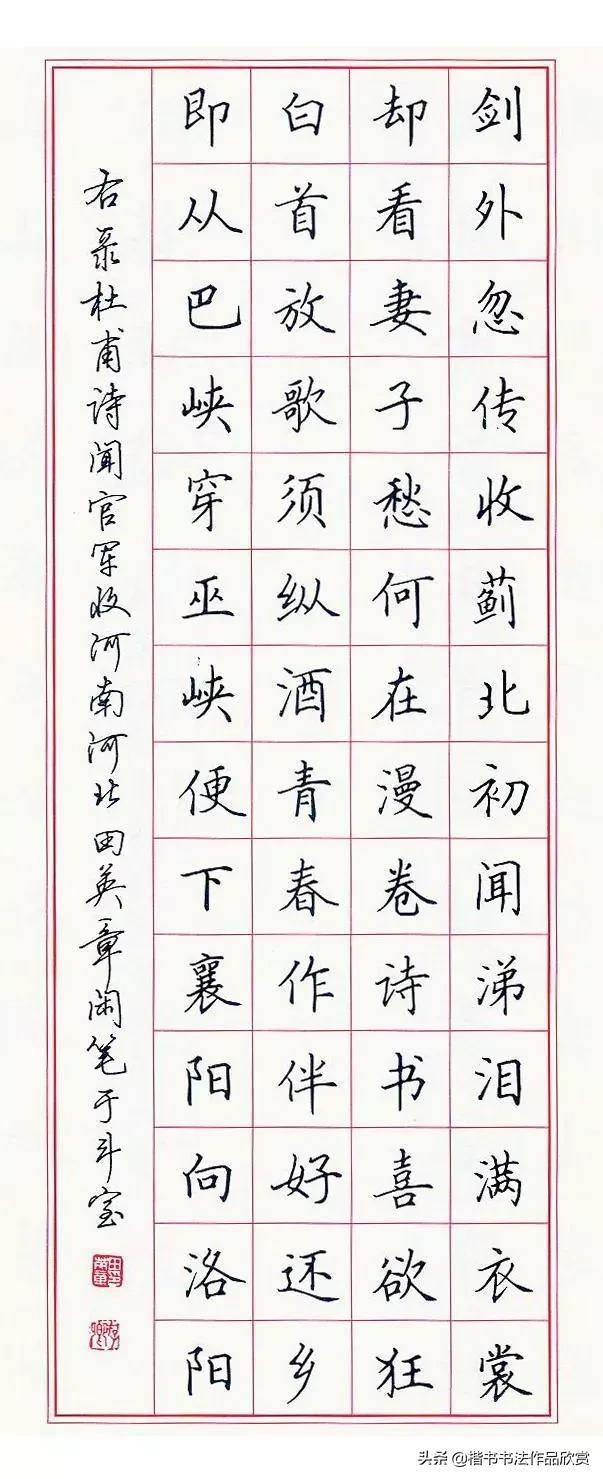 剑外忽传收蓟北初闻涕泪满衣裳
却看妻子愁何在漫卷诗书喜欲狂
白首放歌须纵酒青春作伴好还乡
即从巴峡穿巫峡便下襄阳向洛阳
右录杜甫诗闻官军收河南河北田英章闲笔于斗室
头条 @楷书书法作品欣赏